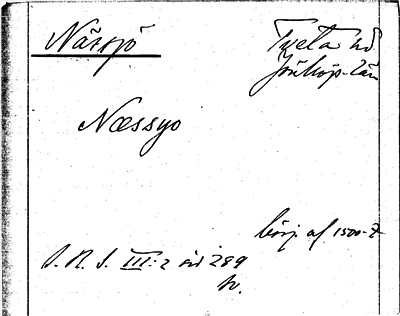 Nässjö
Tveta hd
Jönköp. län
Næssyo
börj. af 1500-t.
S. R. S. III: 2 sid 289